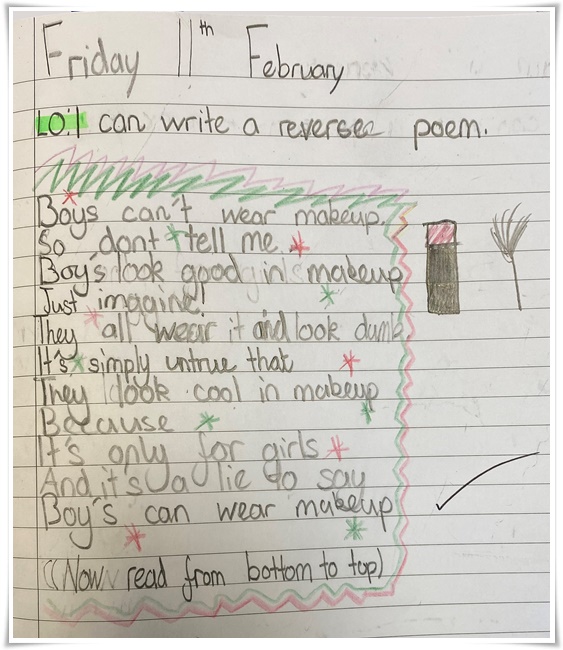 Friday 11th February
LO: I can write a reverse poem.
Boys can't wear makeup.
So dont tell me.
Boy's look good in makeup
Just imagine!
They all wear it and look dumb.
It's simply untrue that
They look cool in makeup
Because
It's only for girls
And it's a lie to say
Boy's can wear makeup
(Now read from bottom to top)